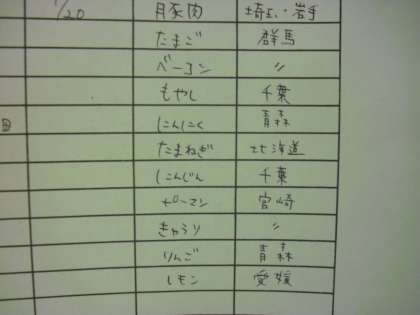 1/20 豚肉 埼玉・岩手
たまご 群馬
ベーコン 〃
もやし 千葉
にんにく 青森
たまねぎ 北海道
にんじん 千葉
ピーマン 宮崎
きゅうり 〃
りんご 青森
レモン 愛媛